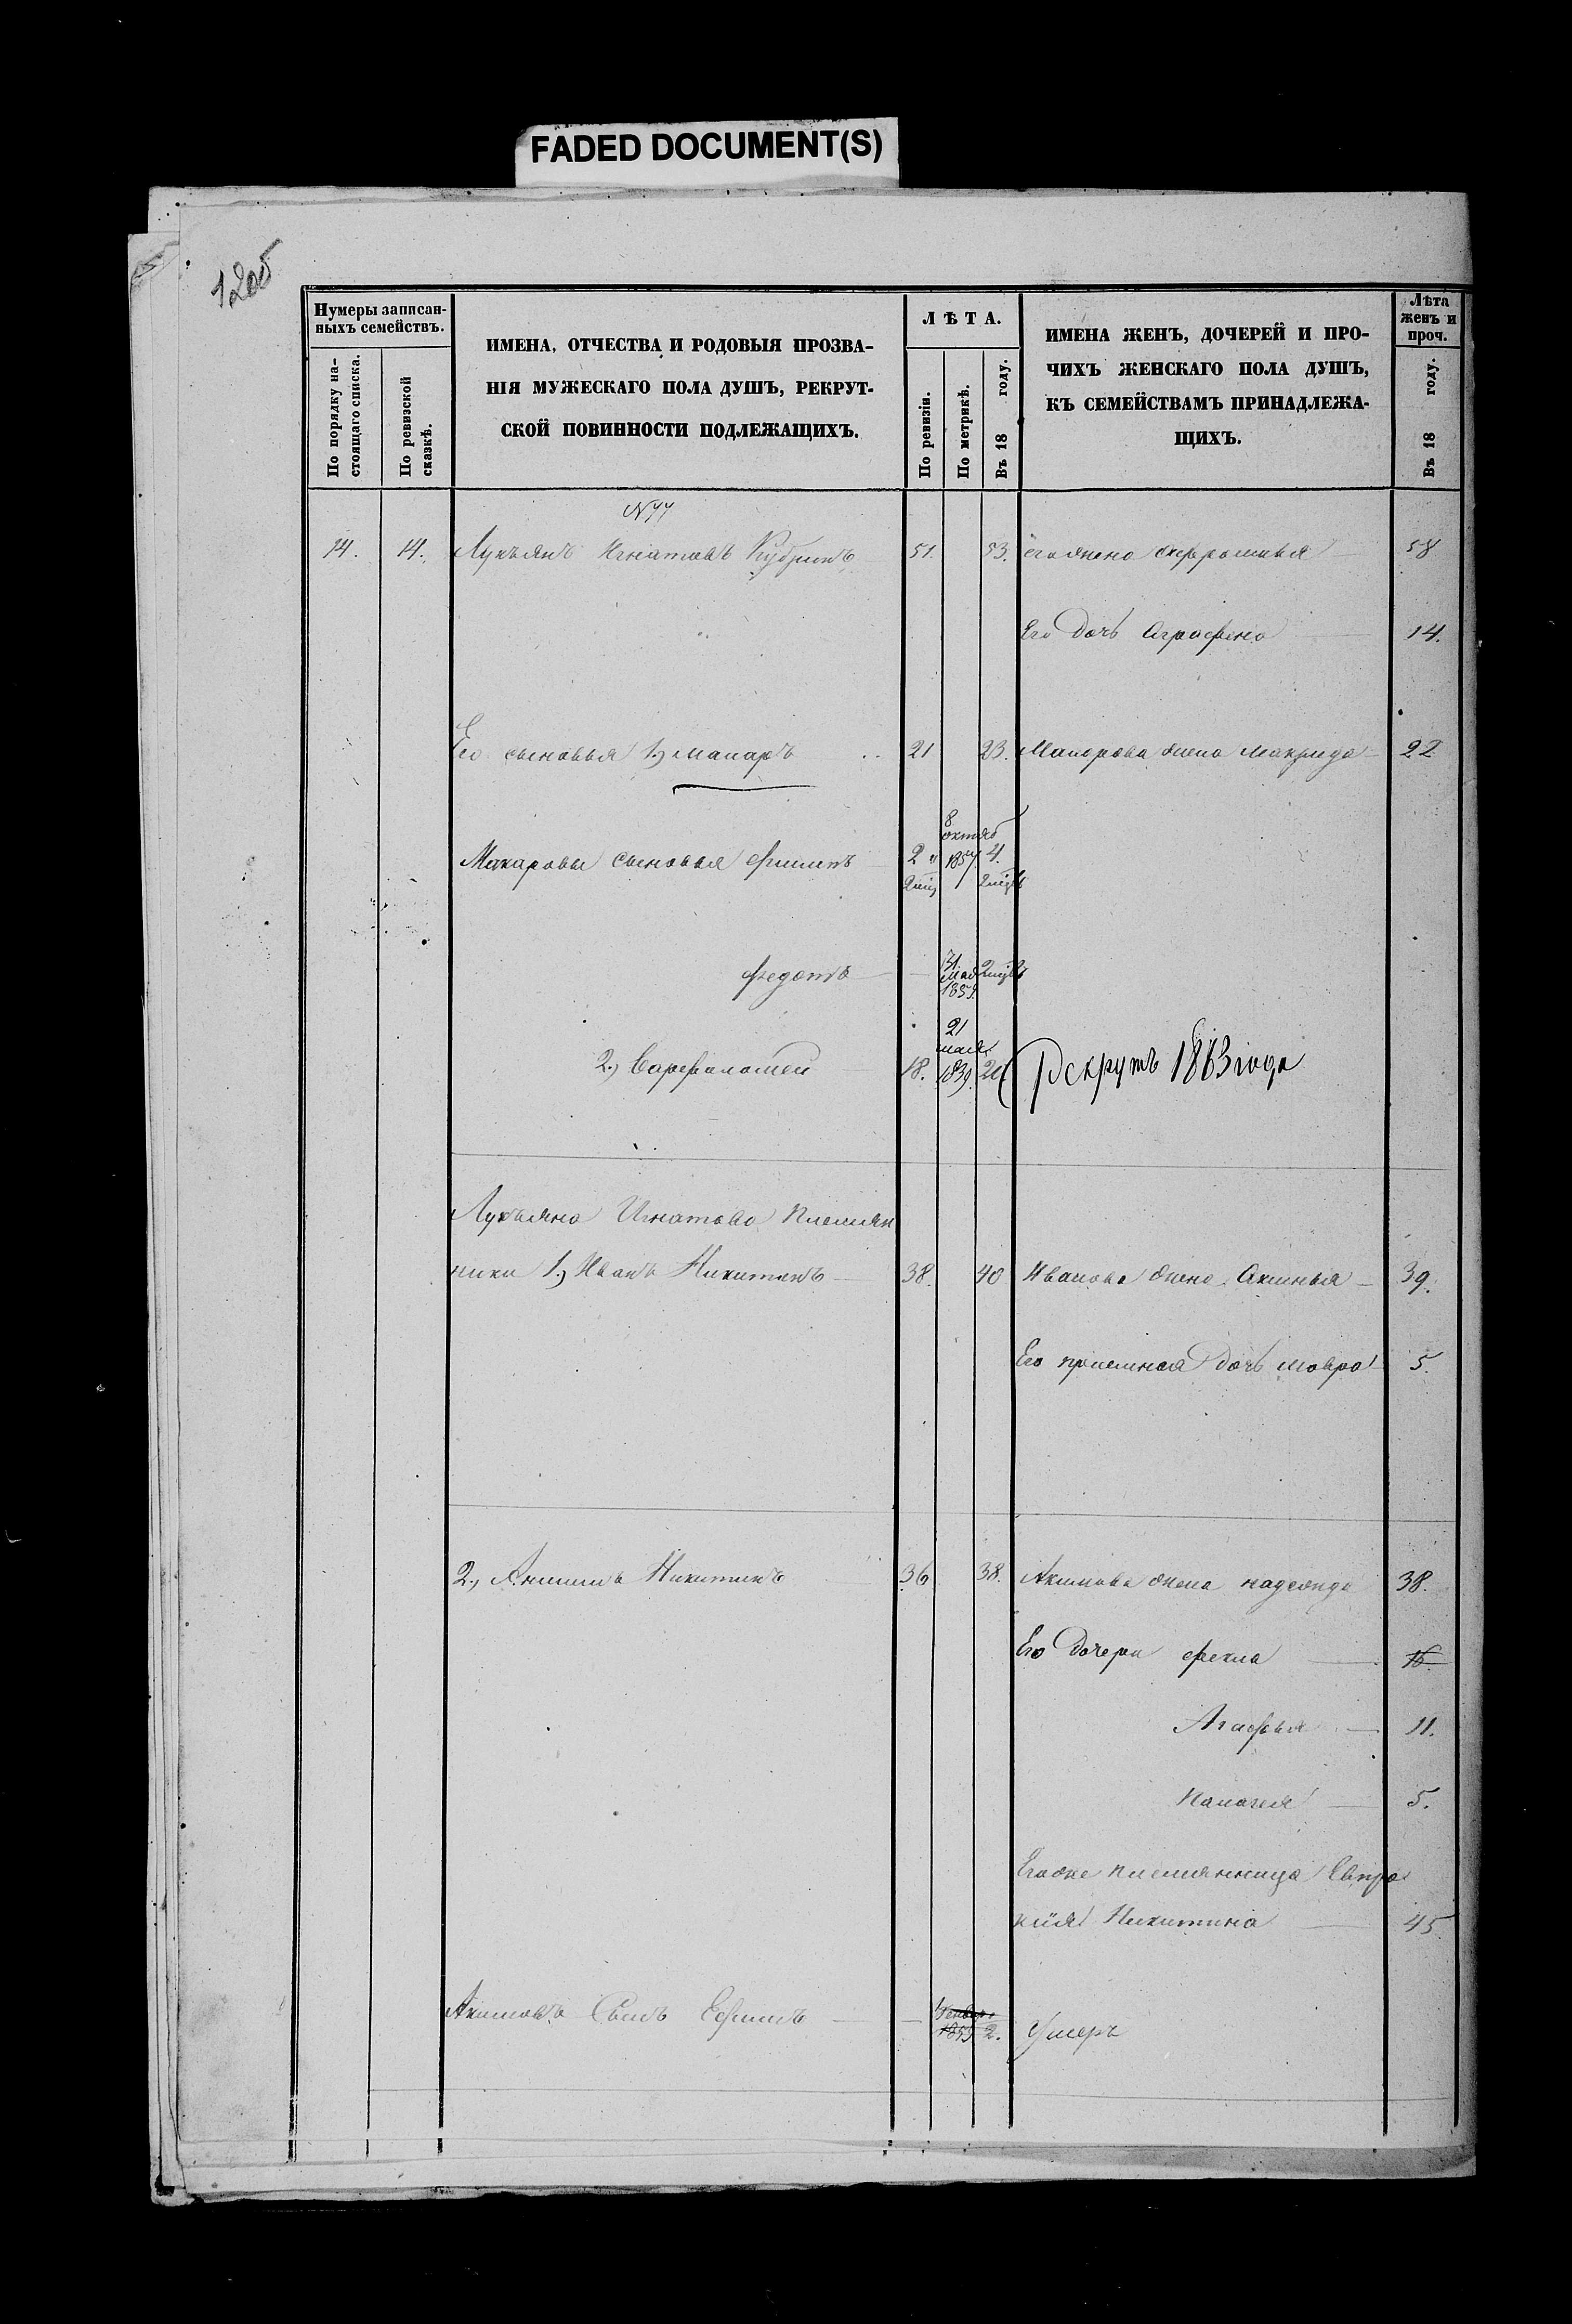 FADED DOCUMENT(S)
1206
Нумеры записан-
ныхъ семействъ.
По порядку на-
стоящаго списка.
По ревизской
сказкѣ.
ИМЕНА, ОТЧЕСТВА И РОДОВЫЯ ПРОЗВА-
НІЯ МУЖЕСКАГО ПОЛА ДУШЪ, РЕКРУТ-
СКОЙ ПОВИННОСТИ ПОДЛЕЖАЩИХЪ.
ЛѢТА.
По ревизіи.
По метрикѣ.
Въ 18 году.
ИМЕНА ЖЕНЪ, ДОЧЕРЕЙ И ПРО-
ЧИХЪ ЖЕНСКАГО ПОЛА ДУШЪ,
КЪ СЕМЕЙСТВАМЪ ПРИНАДЛЕЖА-
ЩИХЪ.
Лѣта
женъ и
проч.
Въ 18 году.
14. 14. Лукъянъ Игнатовъ 51. 53. его жена 58
Его дочь Аграфена 14.
Его сыновья 1.) Макаръ 21 23. Макарова жена Макрида 22
8
октяб
Макаровы сыновья Филипъ 2 1857. 4.
Федотъ 31. мая 1859.
21
мая
2.) Варфоломей 18. 1839. 20 Рекрутъ 1863 года
Лукъяна Игнатова племян
ники 1.) Иванъ Никитинъ 38. 40 Иванова жена Аксинья 39.
Его приемная дочь Мавра 5.
2.) Никитинъ 36 38. Акимова жена Надежда 38.
Его дочери Фекла 16.
Агафья 11.
Палагея 5.
Его же племянница Евпра
Никитина 45
Акимовъ Сынъ Ефимъ 2. Умеръ